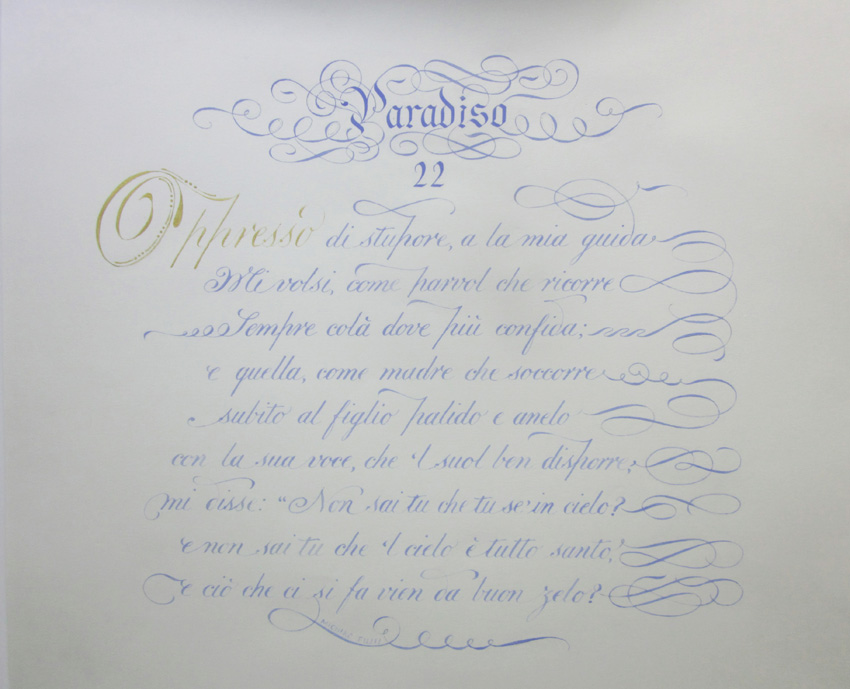 Paradiso
22
Oppresso di stupore, a la mia guida
Mi volsi, come parvol che ricorre
Sempre colà dove più confida;
e quella, come madre che soccorre
subito al figlio palido e anelo
con la sua voce, che 'l suol ben disporre;
mi disse: "Non sai tu che tu se' in cielo?
e non sai tu che 'l cielo è tutto santo,
e ciò che ci si fa vien da buon zelo?